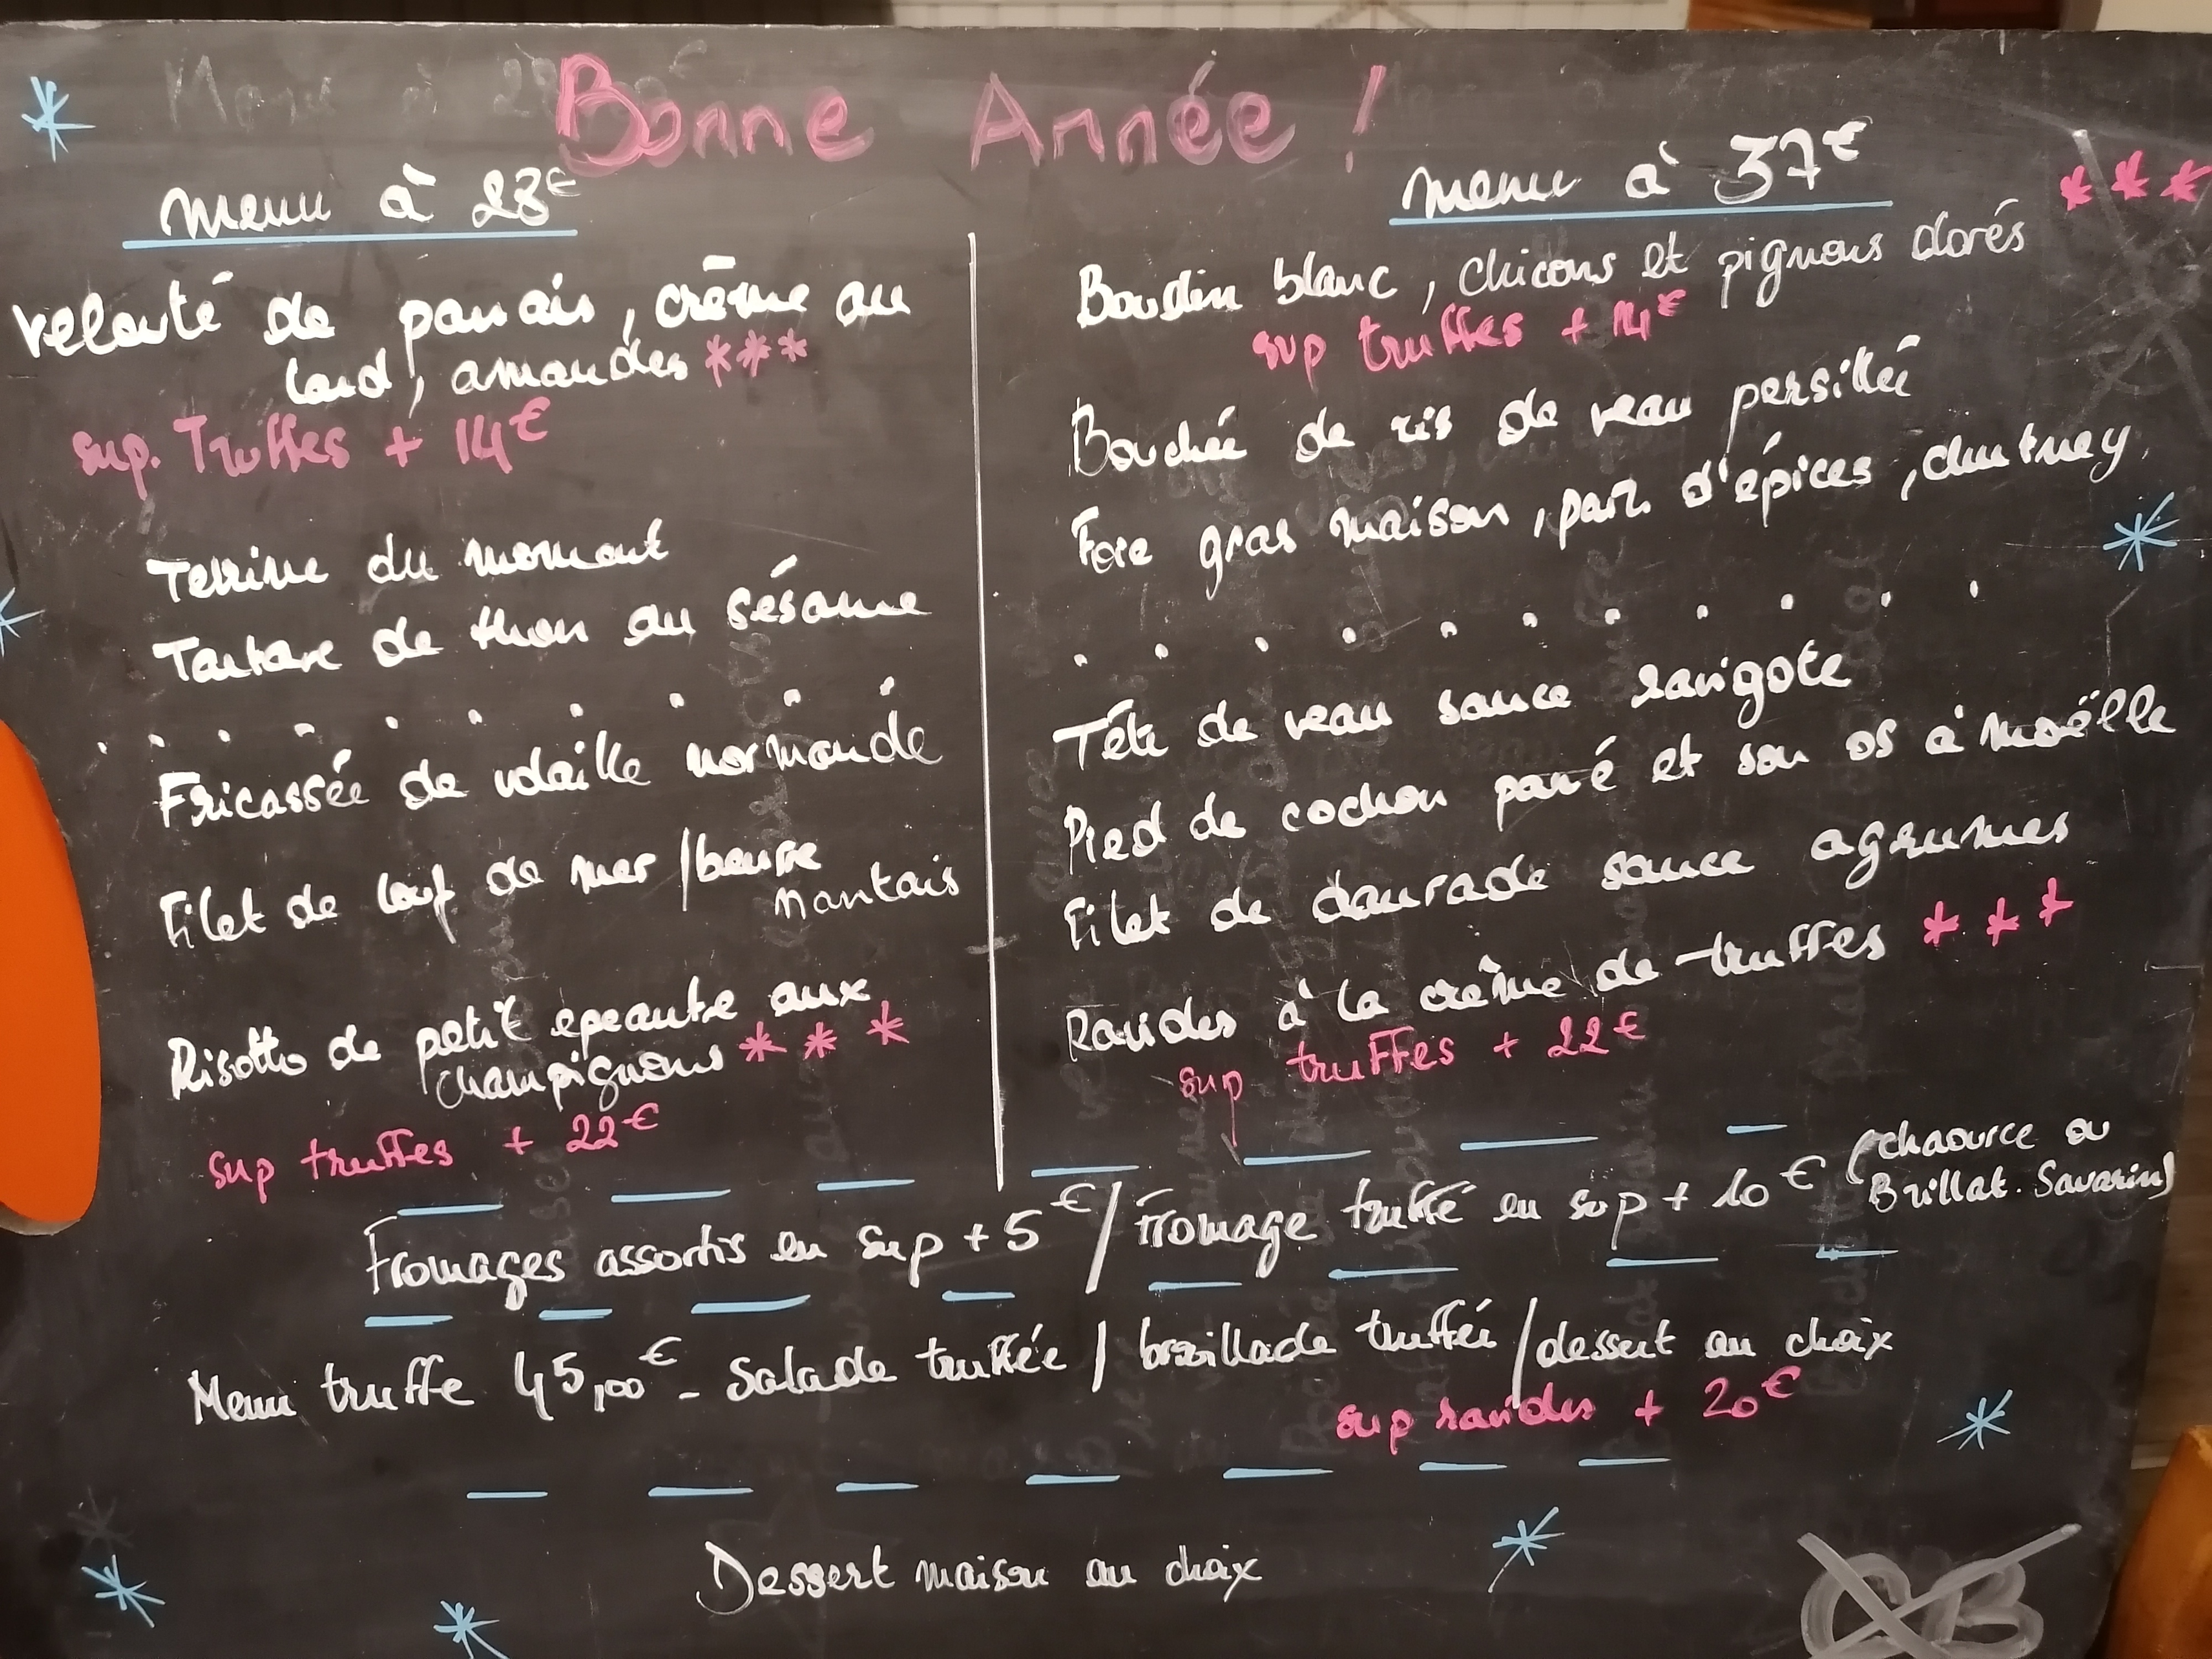 Bonne Année !
menu à 28€
velouté de panais, crème au
lard, amandes ***
sup. Truffes + 14€
Terrine du moment
Tartare de thon au sésame
Fricassée de volaille normande
Filet de loup de mer / beurre
nantais
Risotto de petit épeautre aux
champignons ***
sup truffes + 22€
menu à 37€
***
Boudin blanc, chicons et pignons dorés
sup truffes + 14€
Bouchée de ris de veau persillée
Foie gras maison, pain d'épices, chutney
Tête de veau sauce ravigote
Pied de cochon pané et son os à moëlle
Filet de daurade sauce agrumes
Ravioles à la crème de truffes ***
sup truffes + 22€
Fromages assortis en sup + 5€ / Fromage truffé en sup + 10€ (chaource ou
Brillat-Savarin)
Menu truffe 45,00€ - Salade truffée / brouillade truffée / dessert au choix
sup ravioles + 20€
Dessert maison au choix
CB